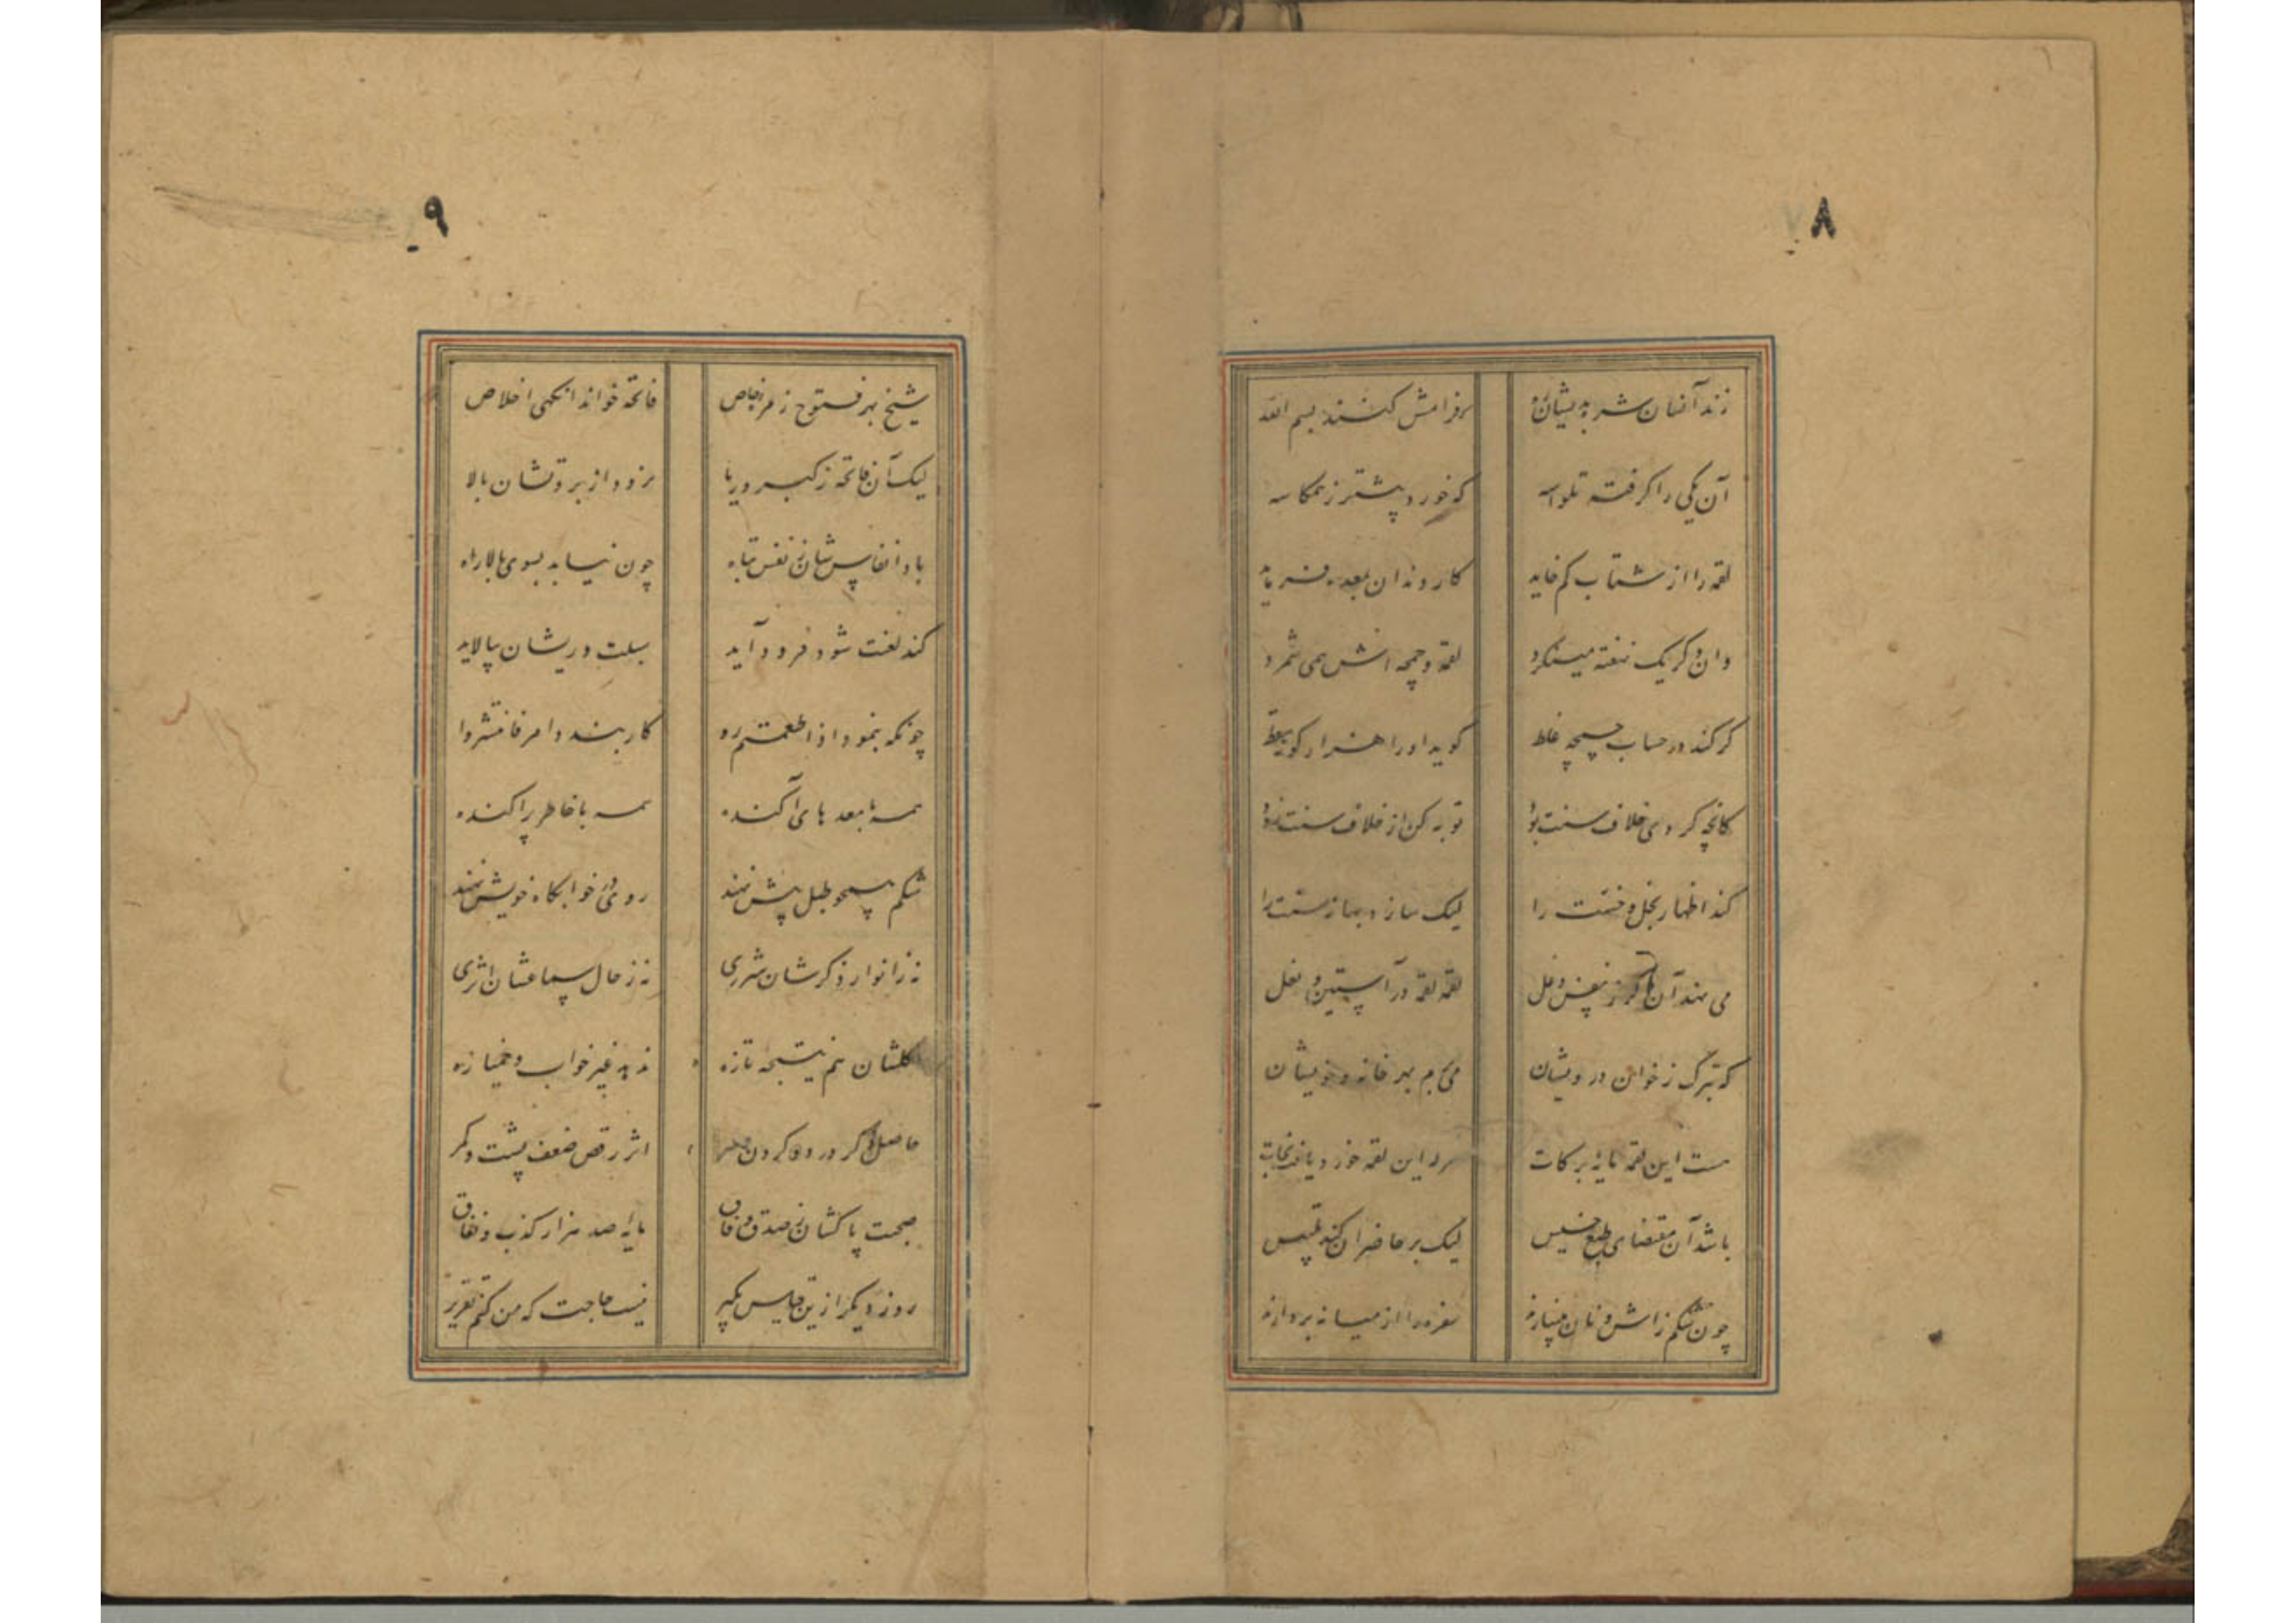 ۸
زند آنسان شره بدیشان ره که فرامش کنند بسم الله
آن یکی را کرفته تلواسه که خورد پیشتر ز همکاسه
لقمه را از شتاب کم خاید کار دندان بمعده فرماید
وان دکر یک نهفته مینکرد لقمه و چمچه اش همی شمرد
کر کند در حساب چمچه غلط کوید او را هزار کونه سقط
کانچه کردی خلاف سنت بود توبه کن از خلاف سنت زود
کند اظهار بخل و خست را لیک سازد بهانه سنت را
می نهد آن دکر ز نفس دغل لقمه لقمه در آستین و بغل
که تبرک ز خوان درویشان می برم بهر خانه و خویشان
هست این لقمه مایه برکات هر که این لقمه خورد یافت نجات
باشد آن مقتضای طبع خسیس لیک بر حاضران کند تلبیس
چون شکم ز آش و نان بینبارند سفره را از میانه بردارند
۹
شیخ بهر فتوح زمره خاص فاتحه خواند انکهی اخلاص
لیک آن فاتحه ز کبر و ریا نرود از بروتشان بالا
باد انفاس شان ز نفس تباه چون نیابد بسوی بالا راه
کند لعنت شود فرود آید سبلت و ریشان بپالاید
چونکه بنمود اذا طعمتم رو کار بندند امر فانتشروا
همه با معدهای آکنده همه با خاطر پراکنده
شکم همچو طبل پیش نهند روی در خوابکاه خویش نهند
نه ز انوار ذکرشان شرری نه ز حال سماعشان اثری
اکلشان هم نتیجه تازه ندهد غیر خواب و خمیازه
حاصل ذکر درد کردن و سر اثر رقص ضعف پشت و کمر
صحبت پاکشان ز صدق و وفاق مایه صد هزار کذب و نفاق
روز دیکر ازین قیاس بکیر نیست حاجت که من کنم تقریر